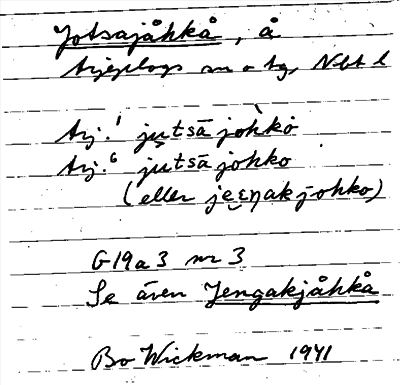 Jotsajåhkå, å
Arjeplogs sn o tg, Nbt l
Arj.¹ ju̯tsā jòhkȯ
Arj.⁶ ju̯tsā johko
(eller jeε̮ŋak johko)
G19a3 nr 3
Se även Jengakjåhkå
Bo Wickman 1941